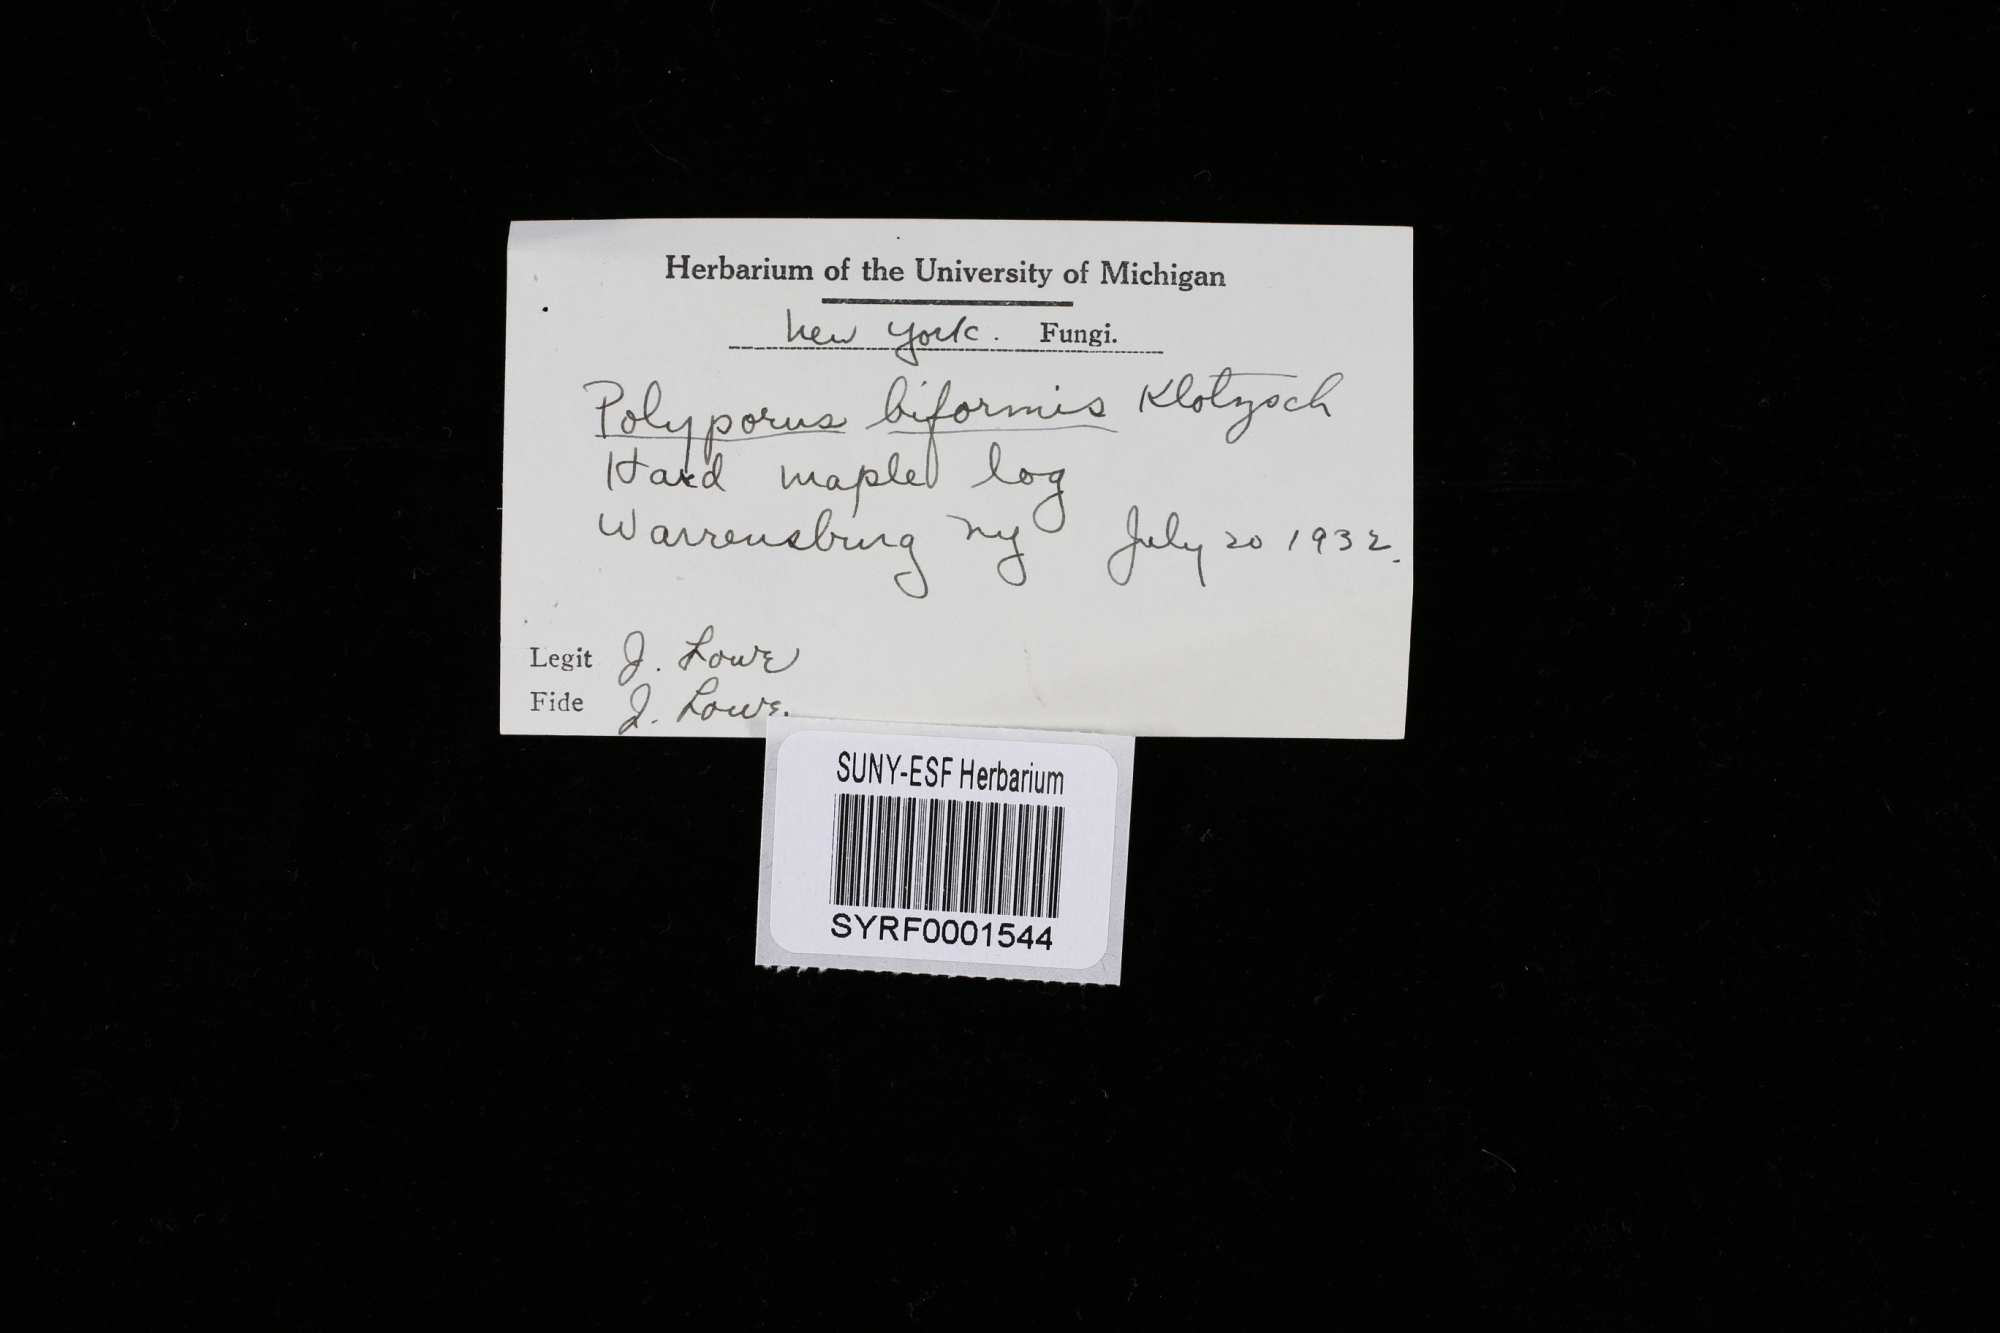 Herbarium of the University of Michigan
New York. Fungi.
Polyporus biformis Klotzsch
Hard maple log
Warrensburg NY July 20 1932.
Legit J. Lowe
Fide J. Lowe.
SUNY-ESF Herbarium
SYRF0001544